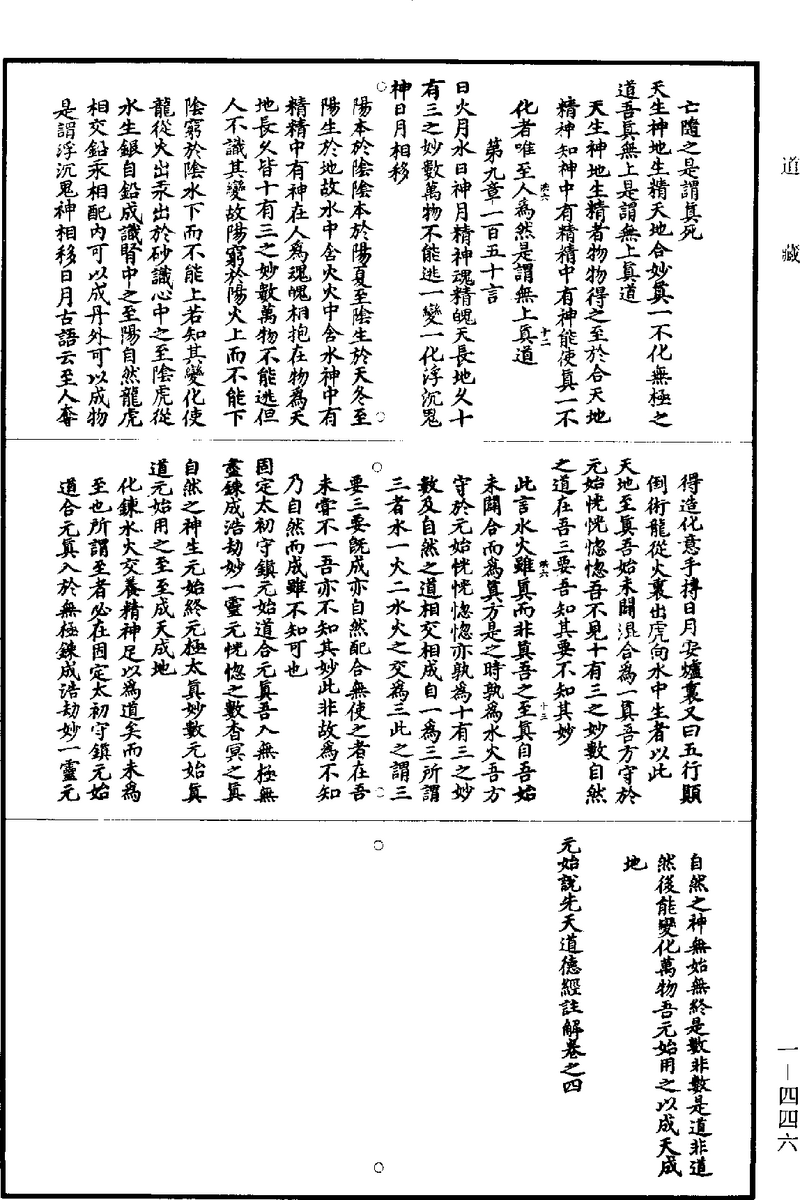 道藏
亡隨之是謂真死
天生神地生精天地合妙真一不化無極之
道吾真無上是謂無上真道
天生神地生精者物物得之至於合天地
精神知神中有精精中有神能使真一不
化者唯至人為然是謂無上真道
第九章一百五十言
日火月水日神月精神魂精魄天長地久十
有三之妙數萬物不能逃一變一化浮沉鬼
神日月相移
陽本於陰陰本於陽夏至陰生於天冬至
陽生於地故水中含火火中含水神中有
精精中有神在人為魂魄相抱在物為天
地長久皆十有三之妙數萬物不能逃但
人不識其變故陽窮於陽火上而不能下
陰窮於陰水下而不能上若知其變化使
龍從火出汞出於砂識心中之至陰虎從
水生銀自鉛成識腎中之至陽自然龍虎
相交鉛汞相配內可以成丹外可以成物
是謂浮沉鬼神相移日月古語云至人奪
得造化意手摶日月安爐裏又曰五行顛
倒術龍從火裏出虎向水中生者以此
天地至真吾始未開混合為一真吾方守於
元始恍恍惚惚吾不見十有三之妙數自然
之道在吾三要吾知其要不知其妙
此言水火雖真而非真吾之至真自吾始
未開合而為真方是之時孰為水火吾方
守於元始恍恍惚惚亦孰為十有三之妙
數及自然之道相交相成自一為三所謂
三者水一火二水火之交為三此之謂三
要三要既成亦自然配合無使之者在吾
未嘗不一吾亦不知其妙此非故為不知
乃自然而成雖不知可也
固定太初守鎮元始道合元真吾入無極無
盡鍊成浩劫妙一靈元恍惚之數杳冥之真
自然之神生元始終元極太真妙數元始真
道元始用之至至成天成地
化鍊水火交養精神足以為道矣而未為
至也所謂至者必在固定太初守鎮元始
道合元真入於無極鍊成浩劫妙一靈元
自然之神無始無終是數非數是道非道
然後能變化萬物吾元始用之以成天成
地
元始說先天道德經註解卷之四
一－四四六